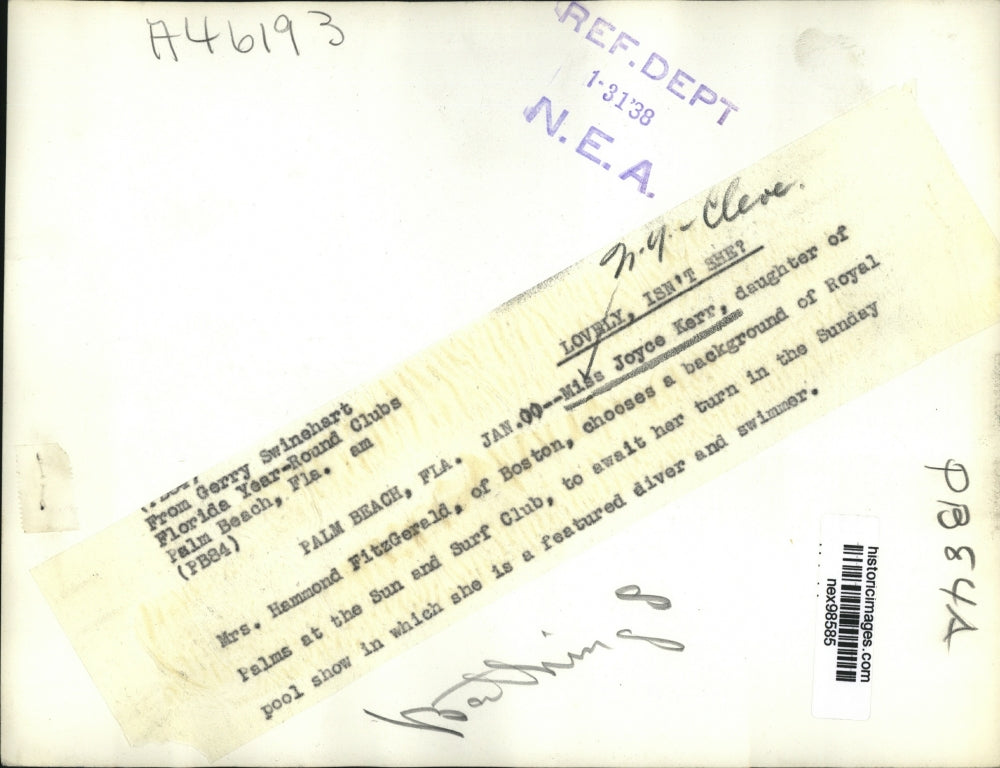 A46193
REF. DEPT
1-31'38
N. E. A.
N.Y. - Cleve.
LOVELY, ISN'T SHE?
From Gerry Swinehart
Florida Year-Round Clubs
Palm Beach, Fla. am
(PB84)
PALM BEACH, FLA. JAN.00--Miss Joyce Kerr, daughter of
Mrs. Hammond FitzGerald, of Boston, chooses a background of Royal
Palms at the Sun and Surf Club, to await her turn in the Sunday
pool show in which she is a featured diver and swimmer.
PB84A
historicimages.com
nex98585